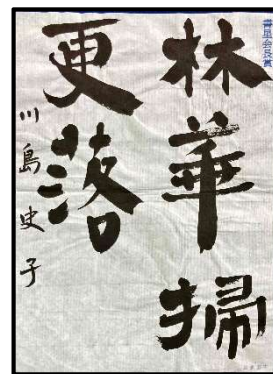 書星会長賞
林華掃
更落
川島史子